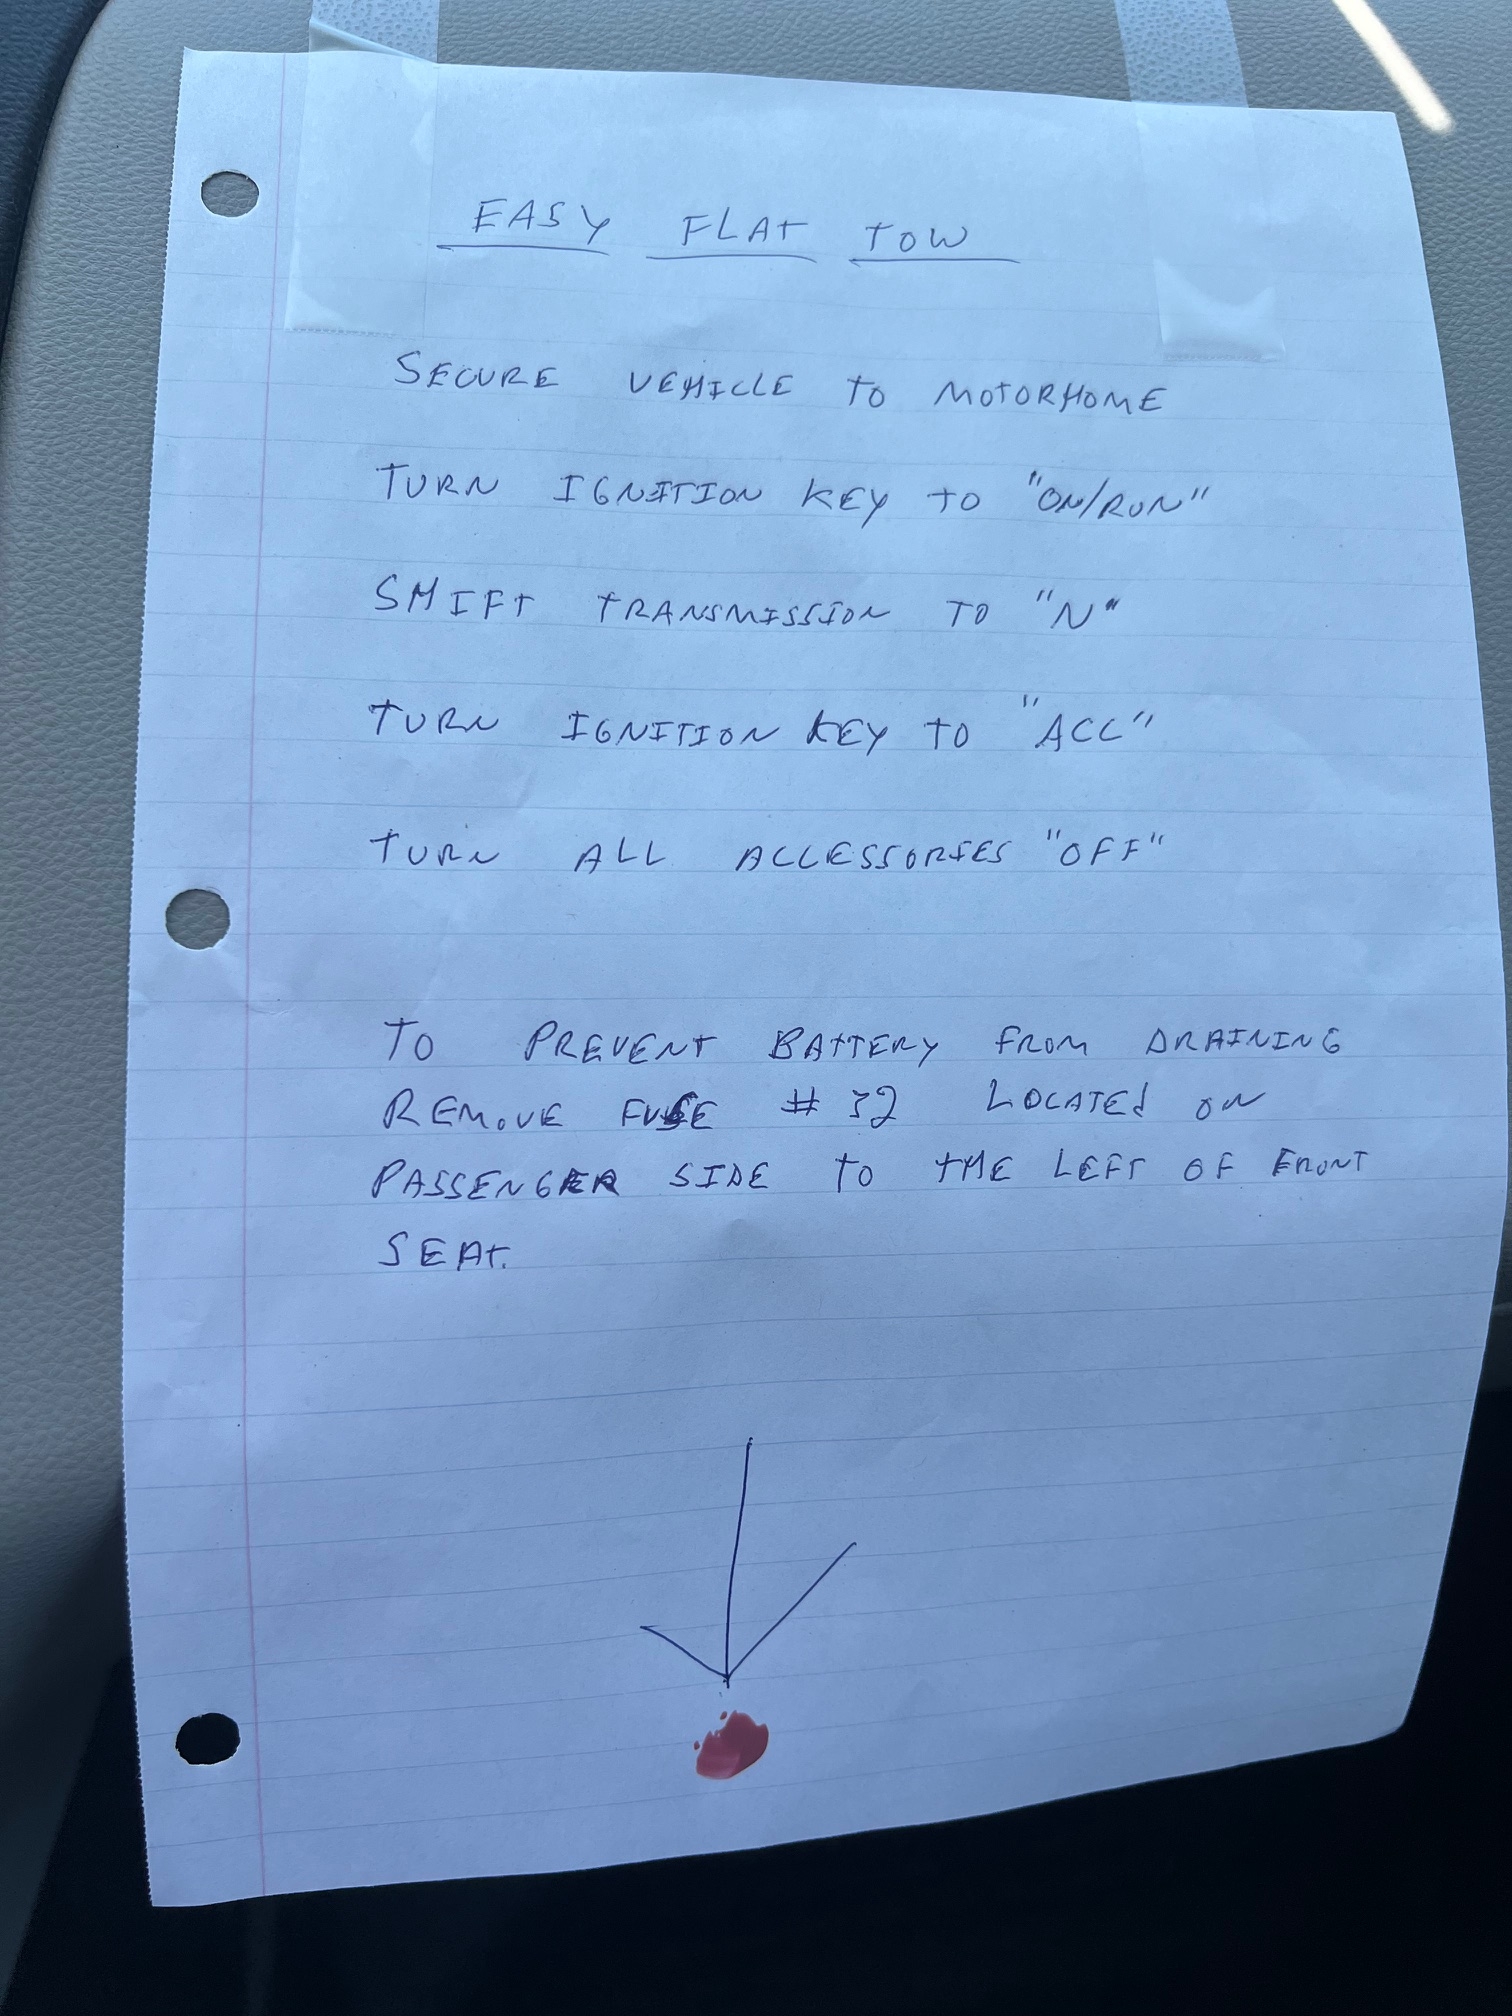 EASY FLAT TOW
SECURE VEHICLE TO MOTORHOME
TURN IGNITION KEY TO "ON/RUN"
SHIFT TRANSMISSION TO "N"
TURN IGNITION KEY TO "ACC"
TURN ALL ACCESSORIES "OFF"
TO PREVENT BATTERY FROM DRAINING
REMOVE FUSE # 32 LOCATED ON
PASSENGER SIDE TO THE LEFT OF FRONT
SEAT.